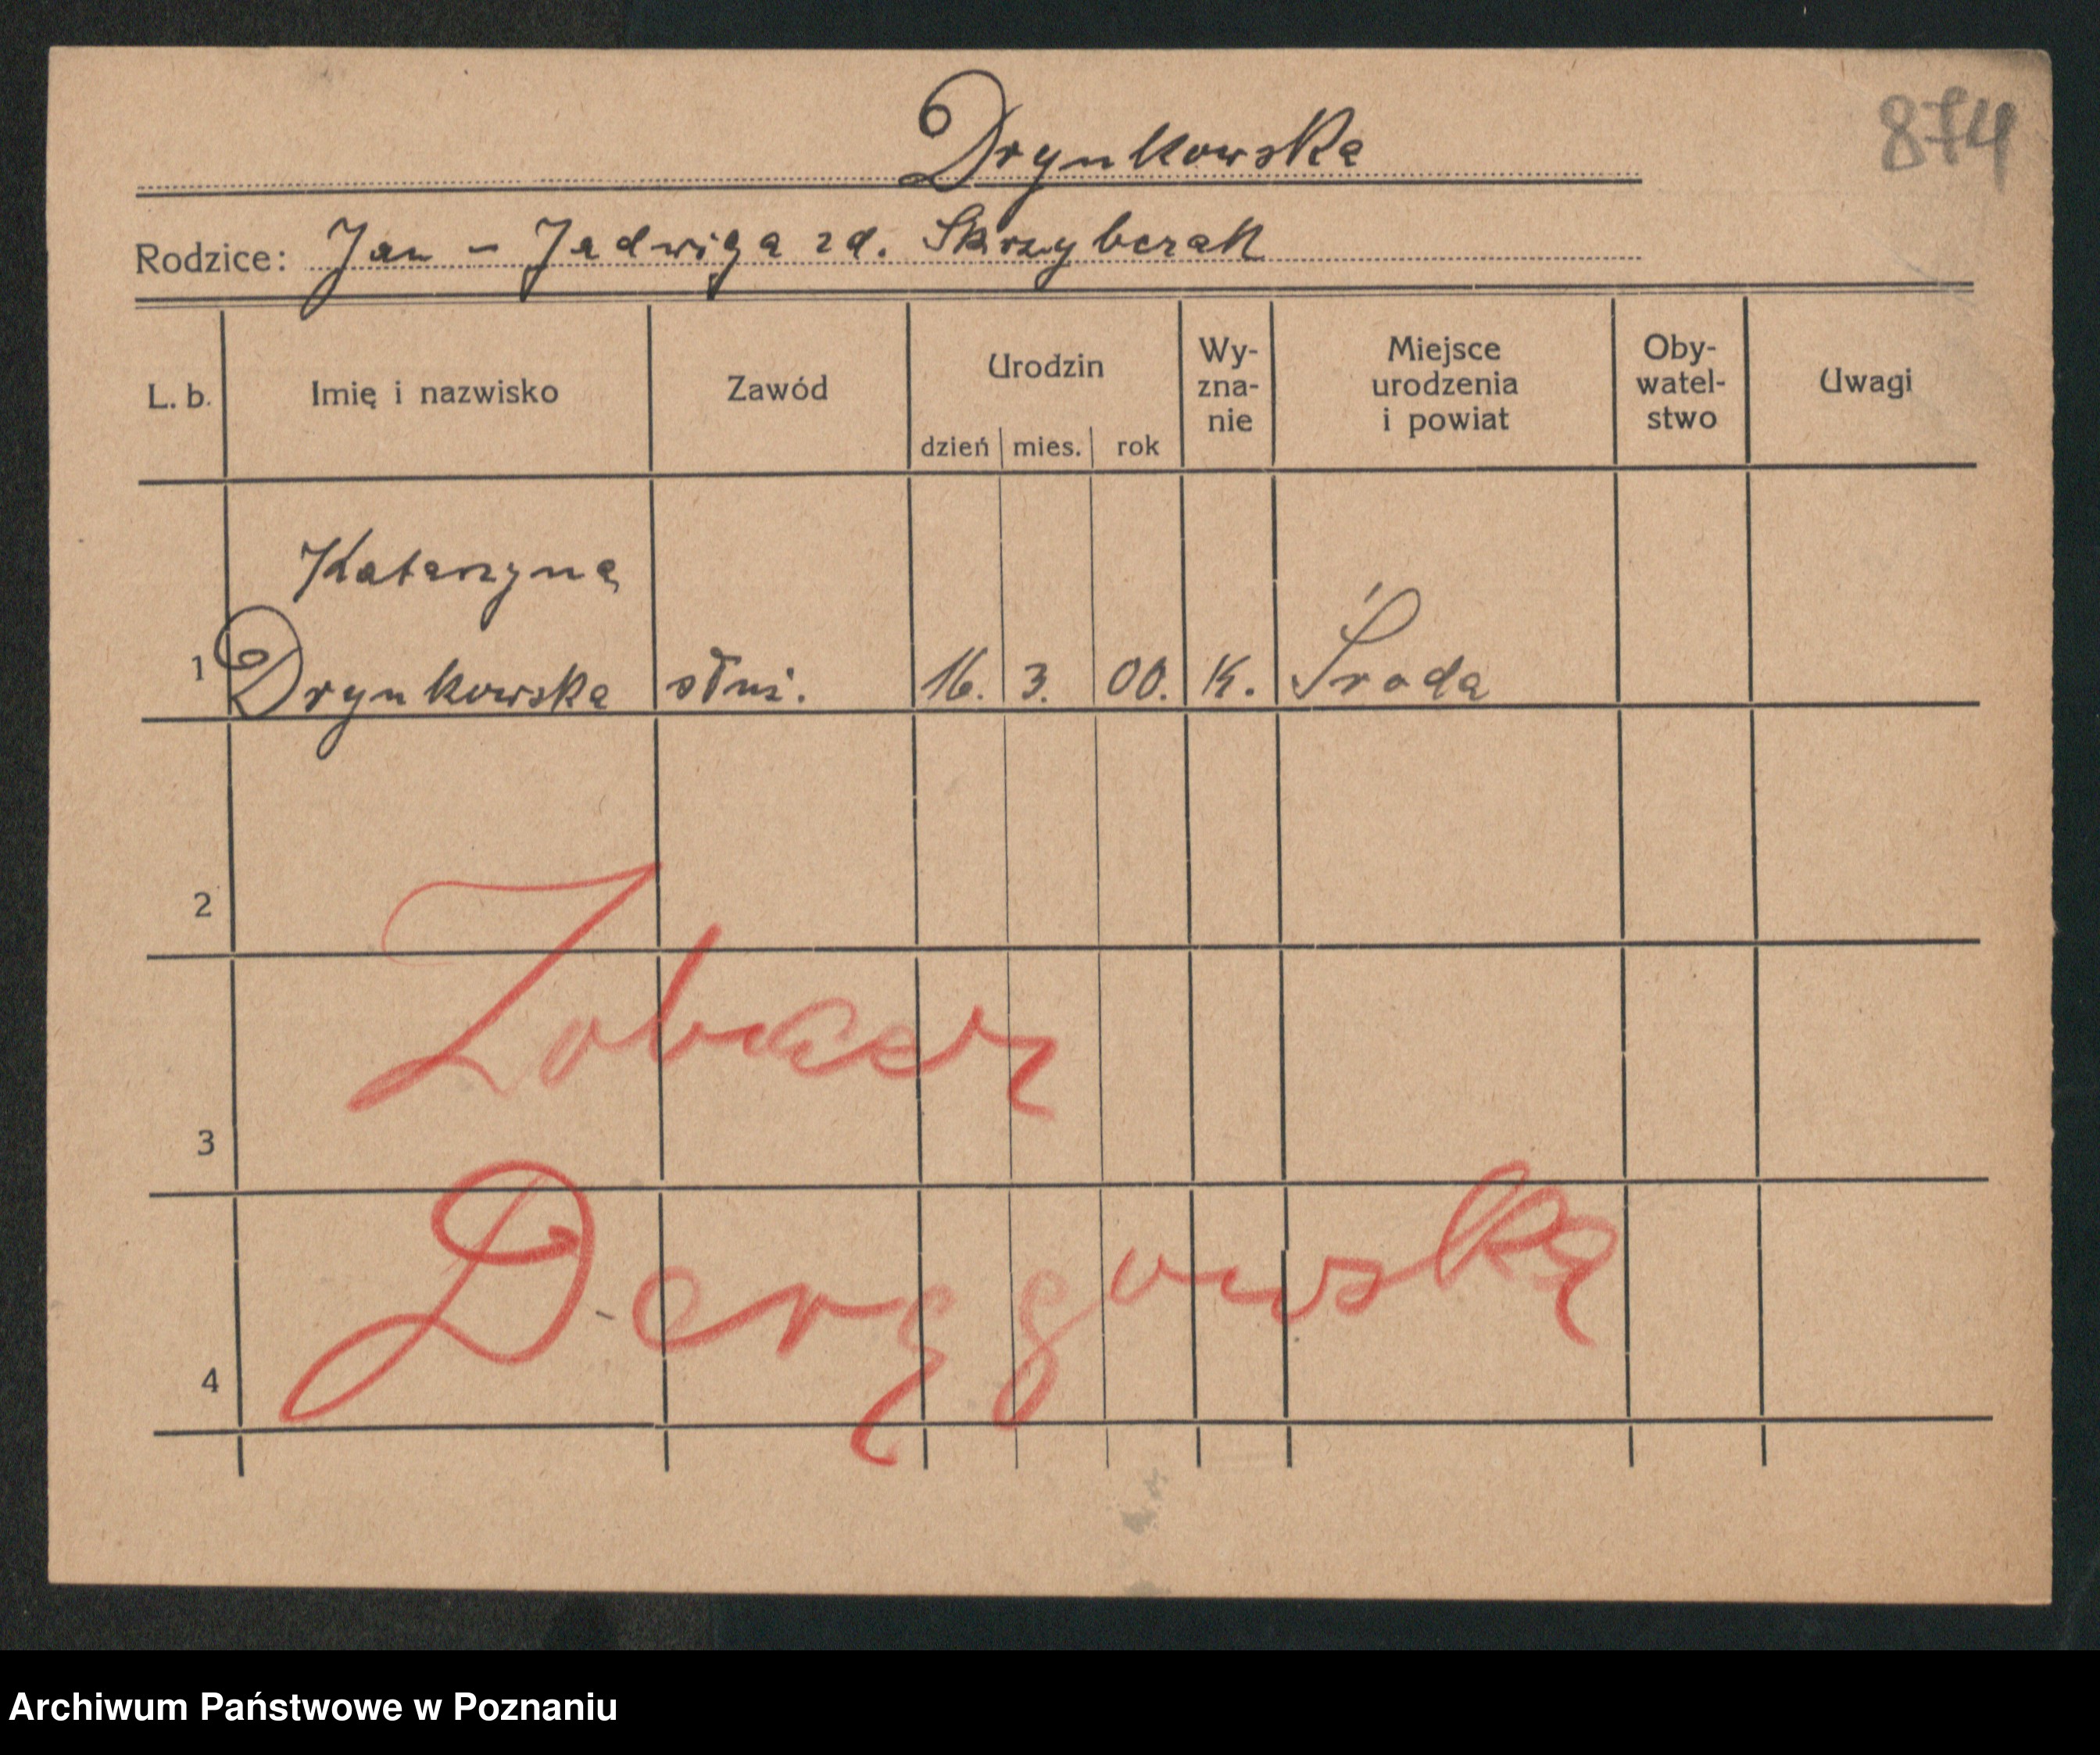 874
Drynkowska
Rodzice: Jan - Jadwiga zd. Skrzybczak
L. b. Imię i nazwisko Zawód Urodzin dzień mies. rok Wy-zna-nie Miejsce urodzenia i powiat Oby-watel-stwo Uwagi
Katarzyna
1 Drynkowska służ. 16. 3. 00. K. Środa
2
Zobacz
3
Dergowską
4
Archiwum Państwowe w Poznaniu